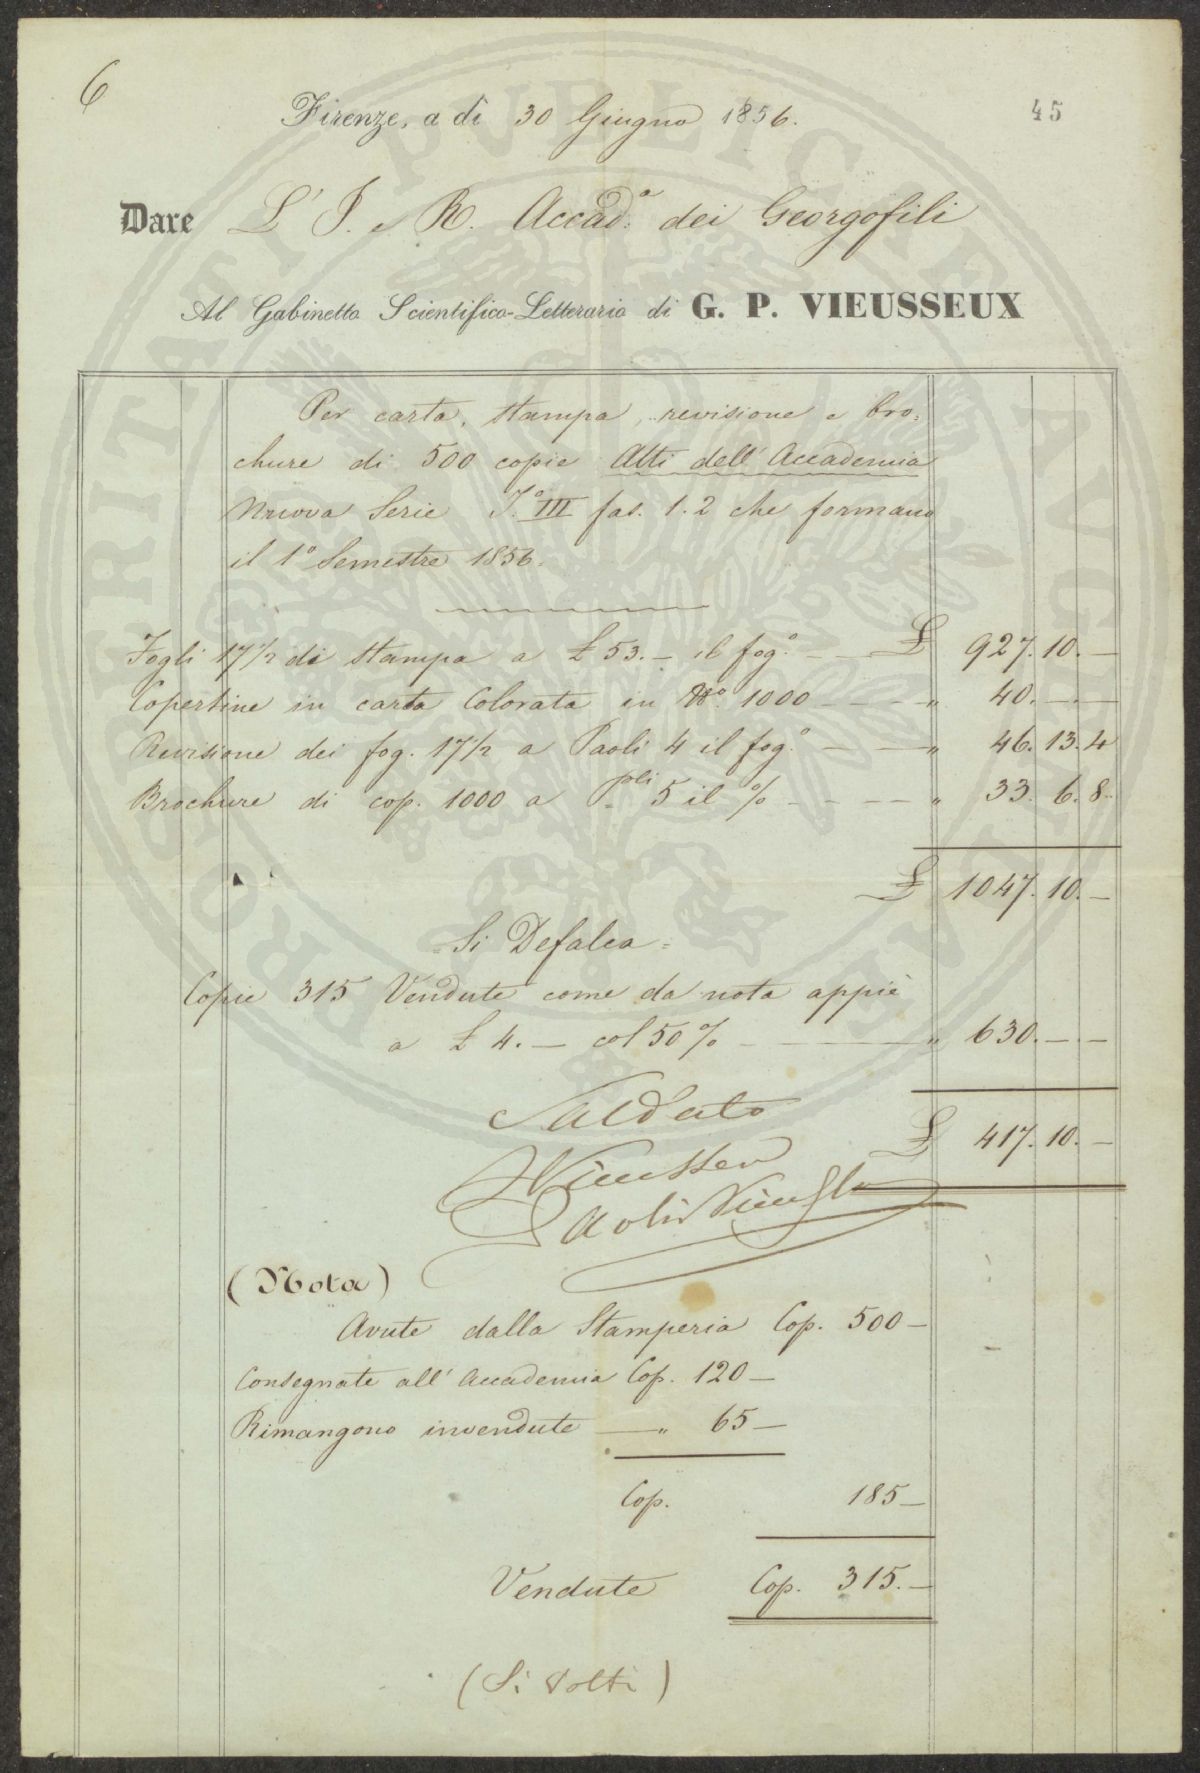 6
45
Firenze, a dì 30 Giugno 1856.
Dare L' I. e R. Accad.a dei Georgofili
Al Gabinetto Scientifico-Letterario di G. P. VIEUSSEUX
Per carta, stampa, revisione e bro=
chure di 500 copie Atti dell' Accademia
Nuova Serie T.o III fas. 1. 2 che formano
il 1° Semestre 1856.
Fogli 17 1/2 di stampa a £ 53. – il fog.o – – £ 927. 10. –
Copertine in carta Colorata in N.o 1000 – – – – " 40. – . –
Revisione dei fog. 17 1/2 a Paoli 4 il fog.o – – " 46. 13. 4
Brochure di cop. 1000 a P.li 5 il % – – – – " 33. 6. 8.
£ 1047. 10. –
= Si Defalca =
Copie 315 Vendute come da nota appiè
a £ 4. – col 50 % – – " 630. – . –
£ 417. 10. –
Saldato
Vieusseux
(Nota)
Avute dalla Stamperia Cop. 500 –
Consegnate all' Accademia Cop. 120 –
Rimangono invendute – " 65 –
Cop. 185 –
Vendute Cop. 315. –
(Si Volti)
PROSPERITATI PVBLICAE AVGENDAE